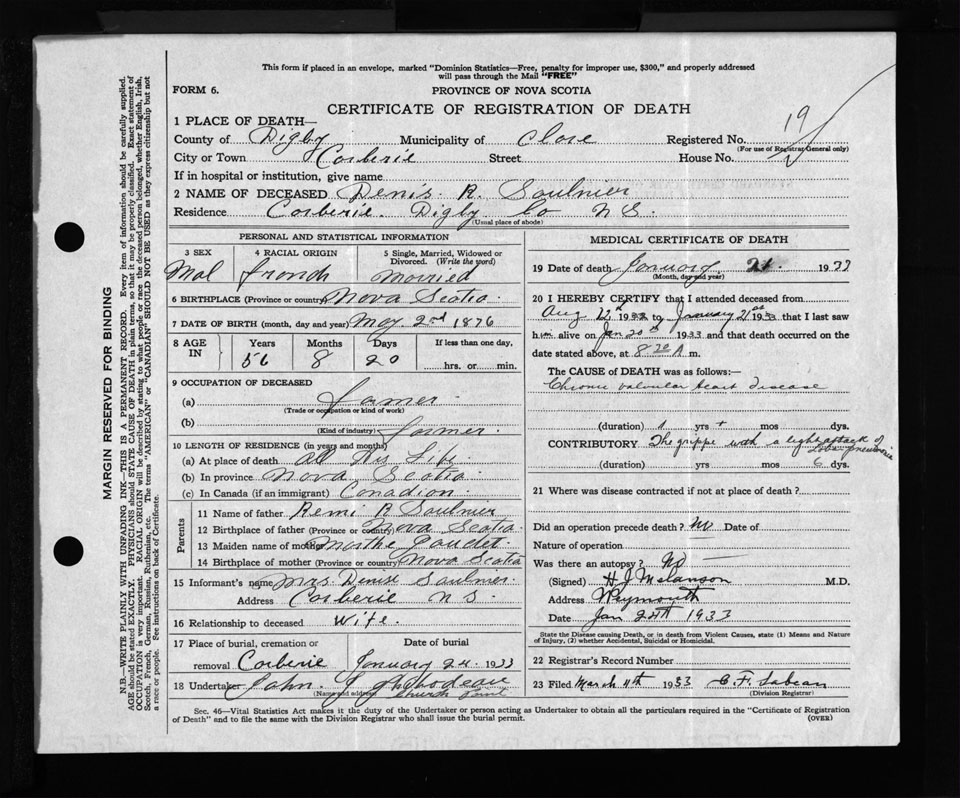 This form if placed in an envelope, marked "Dominion Statistics—Free, penalty for improper use, $300," and properly addressed
will pass through the Mail "FREE"
FORM 6.
PROVINCE OF NOVA SCOTIA
CERTIFICATE OF REGISTRATION OF DEATH
1 PLACE OF DEATH—
County of Digby Municipality of Clare Registered No. 19
(For use of Registrar General only)
City or Town Corberie Street House No.
If in hospital or institution, give name
2 NAME OF DECEASED Denis R. Saulnier
Residence Corberie Digby Co N S.
(Usual place of abode)
PERSONAL AND STATISTICAL INFORMATION
3 SEX Mal
4 RACIAL ORIGIN french
5 Single, Married, Widowed or
Divorced. (Write the word)
Married
6 BIRTHPLACE (Province or country) Nova Scotia
7 DATE OF BIRTH (month, day and year) May 2nd 1876
8 AGE IN Years Months Days If less than one day,
56 8 20 hrs. or min.
9 OCCUPATION OF DECEASED
(a) farmer
(Trade or occupation or kind of work)
(b) farmer
(Kind of industry)
10 LENGTH OF RESIDENCE (in years and months)
(a) At place of death All His Life
(b) In province Nova Scotia
(c) In Canada (if an immigrant) Canadian
Parents
11 Name of father Remi R Saulnier
12 Birthplace of father (Province or country) Nova Scotia
13 Maiden name of mother Marthe
14 Birthplace of mother (Province or country) Nova Scotia
15 Informant's name Mrs. Denise Saulnier
Address Corberie N S.
16 Relationship to deceased Wife.
17 Place of burial, cremation or Date of burial
removal Corberie January 24 1933
18 Undertaker John
(Name and address) Church Point
MEDICAL CERTIFICATE OF DEATH
19 Date of death January 21. 1933
(Month, day and year)
20 I HEREBY CERTIFY that I attended deceased from
Aug 12th 1932 to January 21st 1933 that I last saw
him alive on Jan 20th 1933 and that death occurred on the
date stated above, at 8 20 A m.
The CAUSE of DEATH was as follows:—
Chronic valvular heart disease
(duration) 1 yrs + mos dys.
CONTRIBUTORY The grippe with a light attack of
Lobar pneumonia
(duration) yrs. mos. 6 dys.
21 Where was disease contracted if not at place of death?
Did an operation precede death? No Date of
Nature of operation
Was there an autopsy? No
(Signed) H J Melanson M.D.
Address Weymouth
Date Jan 24th 1933
State the Disease causing Death, or in death from Violent Causes, state (1) Means and Nature
of Injury, (2) whether Accidental, Suicidal or Homicidal.
22 Registrar's Record Number
23 Filed March 11th 1933 C. F. Sabean
(Division Registrar)
Sec. 46—Vital Statistics Act makes it the duty of the Undertaker or person acting as Undertaker to obtain all the particulars required in the "Certificate of Registration
of Death" and to file the same with the Division Registrar who shall issue the burial permit.
(OVER)
MARGIN RESERVED FOR BINDING
N.B.—WRITE PLAINLY WITH UNFADING INK—THIS IS A PERMANENT RECORD. Every item of information should be carefully supplied.
AGE should be stated EXACTLY. PHYSICIANS should STATE CAUSE OF DEATH in plain terms, so that it may be properly classified. Exact statement of
OCCUPATION is very important. RACIAL ORIGIN will be described by stating to what people or race the deceased person belonged, whether English, Irish,
Scotch, French, German, Russian, Ruthenian, etc. The terms "AMERICAN" or "CANADIAN" SHOULD NOT BE USED as they express citizenship but not
a race or people. See instructions on back of Certificate.